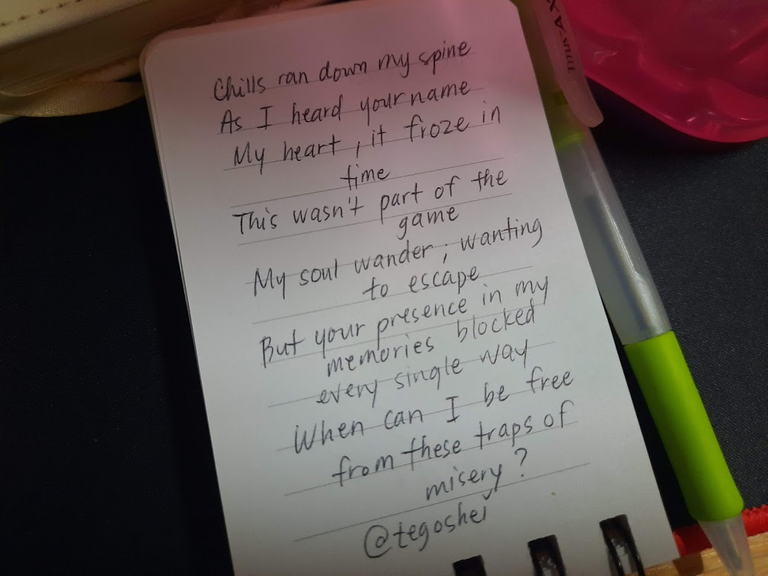 Chills ran down my spine
As I heard your name
My heart, it froze in
time
This wasn't part of the
game
My soul wander; wanting
to escape
But your presence in my
memories blocked
every single way
When can I be free
from these traps of
misery?
@tegoshei